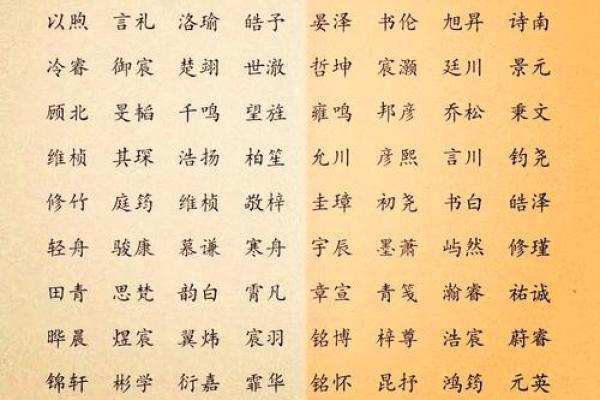 以煦 言礼 洛瑜 皓予 晏泽 书伦 旭昇 诗南
冷睿 御宸 楚翊 世澈 哲坤 宸灏 廷川 景元
顾北 旻韬 千鸣 望旌 雍鸣 邦彦 乔松 秉文
维桢 其琛 浩扬 柏笙 允川 彦熙 言川 钧尧
修竹 庭筠 维桢 敬梓 圭璋 初尧 书白 皓泽
轻舟 骏康 慕谦 寒舟 宇辰 墨萧 屿然 修瑾
田青 思梵 韵白 霄凡 章宣 青笺 瀚睿 祐诚
晔晨 煜宸 翼炜 宸羽 铭博 梓尊 浩宸 蔚睿
锦轩 彬学 衍嘉 霏华 铭怀 昆抒 鸿筠 元英